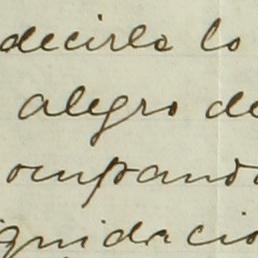 decirle lo
alegro de
ompando
iquidacio